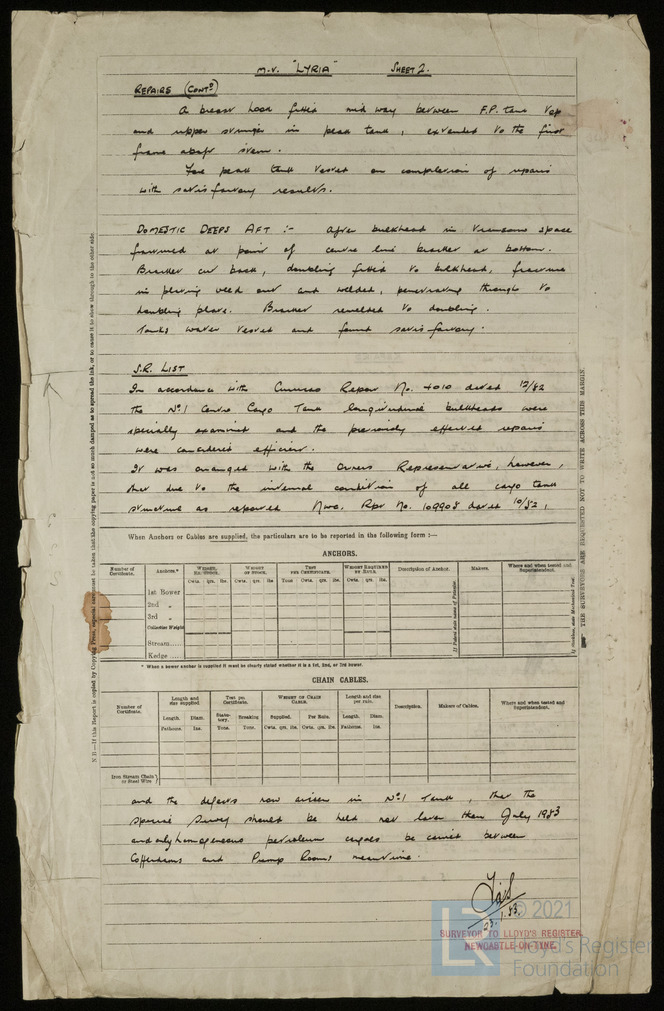 M.V. "LYRIA" SHEET 2.
REPAIRS (CONTD)
A breast hook fitted mid way between F.P. tank top
and upper stringer in peak tank, extended to the first
frame abaft stem.
Fore peak tank tested on completion of repairs
with satisfactory results.
DOMESTIC DEEPS AFT :- After bulkhead in transome space
fractured at point of centre line bracket at bottom.
Bracket cut back, doubling fitted to bulkhead, fracture
in plating veed out and welded, penetrating through to
doubling plate. Bracket rewelded to doubling.
Tanks water tested and found satisfactory.
S.R. LIST
In accordance with Curacao Report No. 4010 dated 12/52
the No.1 Centre Cargo Tank longitudinal bulkheads were
specially examined and the previously effected repairs
were considered efficient.
It was arranged with the Owners Representative, however,
that due to the internal condition of all cargo tank
structure as reported Nwc. Rpt No. 109908 dated 10/52,
When Anchors or Cables are supplied, the particulars are to be reported in the following form :—
ANCHORS.
Number of Certificate. Anchors.* WEIGHT, EX. STOCK. WEIGHT OF STOCK. TEST PER CERTIFICATE. WEIGHT REQUIRED BY RULE. Description of Anchor. Makers. Where and when tested and Superintendent.
Cwts. qrs. lbs. Cwts. qrs. lbs. Tons Cwts. qrs. lbs. Cwts. qrs. lbs.
1st Bower
2nd „
3rd „
Collective Weight
Stream
Kedge
* When a bower anchor is supplied it must be clearly stated whether it is a 1st, 2nd, or 3rd bower.
CHAIN CABLES.
Number of Certificate. Length and size supplied Test per Certificate. WEIGHT OF CHAIN CABLE. Length and size per rule. Description. Makers of Cables. Where and when tested and Superintendent.
Length. Diam. Statutory. Breaking Supplied. Per Rule. Length. Diam.
Fathoms. Ins. Tons. Tons. Cwts. qrs. lbs. Cwts. qrs. lbs. Fathoms. Ins.
Iron Stream Chain or Steel Wire
and the defects now arisen in No.1 Tank, that the
Special Survey should be held not later than July 1953
and only homogeneous petroleum cargoes be carried between
Cofferdams and Pump Rooms meantime.
23.1.53.
SURVEYOR TO LLOYD'S REGISTER
NEWCASTLE-ON-TYNE.
© 2021
Lloyd's Register
Foundation
N.B.—If this Report is copied by Copying Press, especial care must be taken that the copying paper is not so much damped as to spread the ink, or to cause it to show through to the other side.
THE SURVEYORS ARE REQUESTED NOT TO WRITE ACROSS THIS MARGIN.